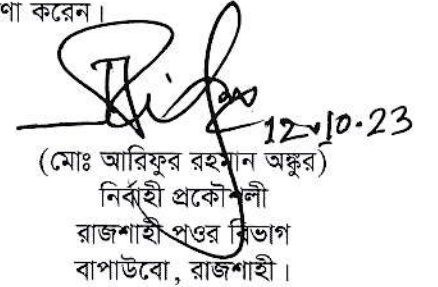 ণা করেন।
12.10.23
(মোঃ আরিফুর রহমান অঙ্কুর)
নির্বাহী প্রকৌশলী
রাজশাহী পওর বিভাগ
বাপাউবো, রাজশাহী।